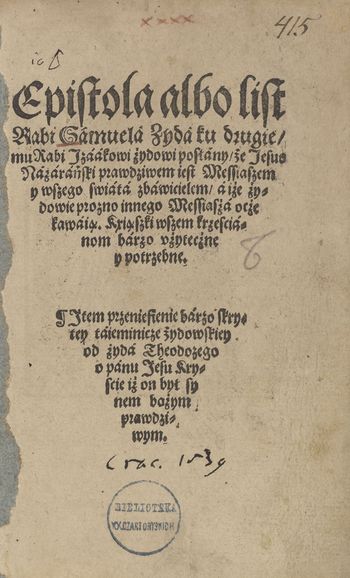 415
Epistola albo list
Rabi Sámuelá Zydá ku drugie/
mu Rabi Jzáákowi żydowi posłány/ że Jesus
Názáráński prawdziwem iest Messiaszem
y wszego swiátá zbáwicielem/ a iże ży/
dowie prozno innego Messiaszá ocże
kawáią. Kxiąszki wszem krześciá/
nom bárzo vżytecżne
y potrzebne.
¶ Jtem przeniesienie bárzo skry/
tey táiemnicże żydowskiey
od żydá Theodozego
o pánu Jesu Kry/
scie iż on był sy
nem bożym
prawdzi/
wym.
Crac. 1539
BIBLIOTEKA
XX. CZARTORYSKICH